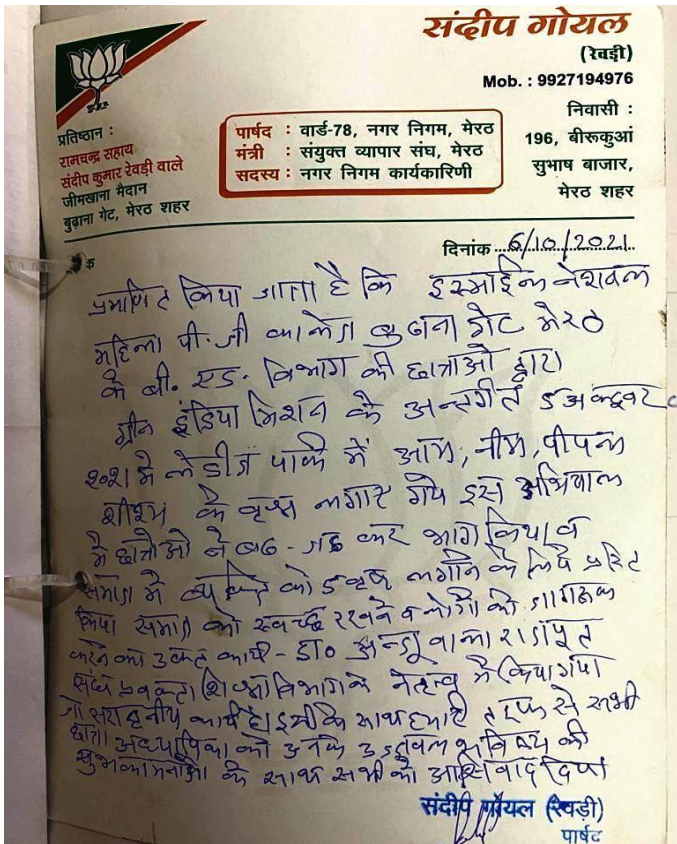 संदीप गोयल
(रेवड़ी)
Mob. : 9927194976
प्रतिष्ठान :
रामचन्द्र सहाय
संदीप कुमार रेवड़ी वाले
जीमखाना मैदान
बुढ़ाना गेट, मेरठ शहर
पार्षद : वार्ड-78, नगर निगम, मेरठ
मंत्री : संयुक्त व्यापार संघ, मेरठ
सदस्य : नगर निगम कार्यकारिणी
निवासी :
196, बीरूकुआं
सुभाष बाजार,
मेरठ शहर
क
दिनांक 6/10/2021
प्रमाणित किया जाता है कि इस्माईल नेशनल
महिला पी.जी कालेज बुढाना गेट मेरठ
के बी. एड. विभाग की छात्राओ द्वारा
ग्रीन इंडिया मिशन के अन्तर्गत 5 अक्टूबर
२०२१ मे लेडीज पार्क में आम, नीम, पीपल
शीशम के वृक्ष लगाए गये इस अभियान
मे छात्राओ ने बढ-चढ कर भाग किया व
समाज मे व्यक्ति को 5 वृक्ष लगाने के लिये प्रेरित
किया समाज को स्वच्छ रखने व लोगो को जागरूक
करने का उक्त कार्य - डा० अन्जू बाला राजपूत
प्रवक्ता शिक्षा विभाग के नेतृत्व मे किया गया
जो सराहनीय कार्य है। इसी के साथ हमारी तरफ से सभी
छात्रा अध्यापिका को उनके उज्जवल भविष्य की
शुभकामनाओ के साथ सभी को आर्शिवाद दिया
संदीप गोयल (रेवड़ी)
पार्षद